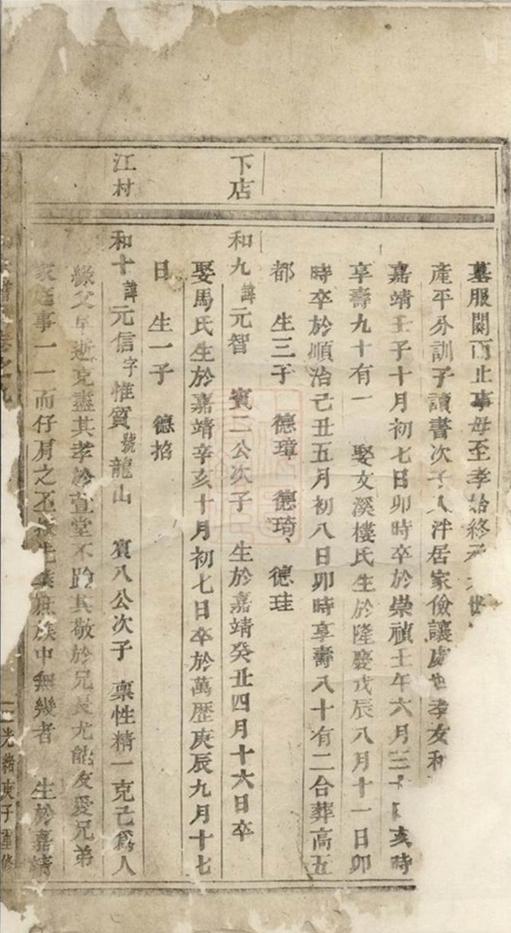 墓服闋而止事母至孝始終
產平分訓子讀書次子入泮居家儉讓處世孝友和
嘉靖壬子十月初七日卯時卒於崇禎壬午六月三十日亥時
享壽九十有一 娶文溪樓氏生於隆慶戊辰八月十一日卯
時卒於順治己丑五月初八日卯時享壽八十有二合葬高五
都 生三子 德璋 德琦 德珪
下店
和九諱元智 賓二公次子 生於嘉靖癸丑四月十六日卒
娶馬氏生於嘉靖辛亥十月初七日卒於萬歷庚辰九月十七
日 生一子 德掐
江村
和十諱元信字惟賓號龍山 賓八公次子 稟性精一克己為人
緣父早逝克盡其孝於萱堂不踰其敬於兄長尤能友愛兄弟
家庭事一一而仔肩之 族中無幾者 生於嘉靖
光緒庚子重修